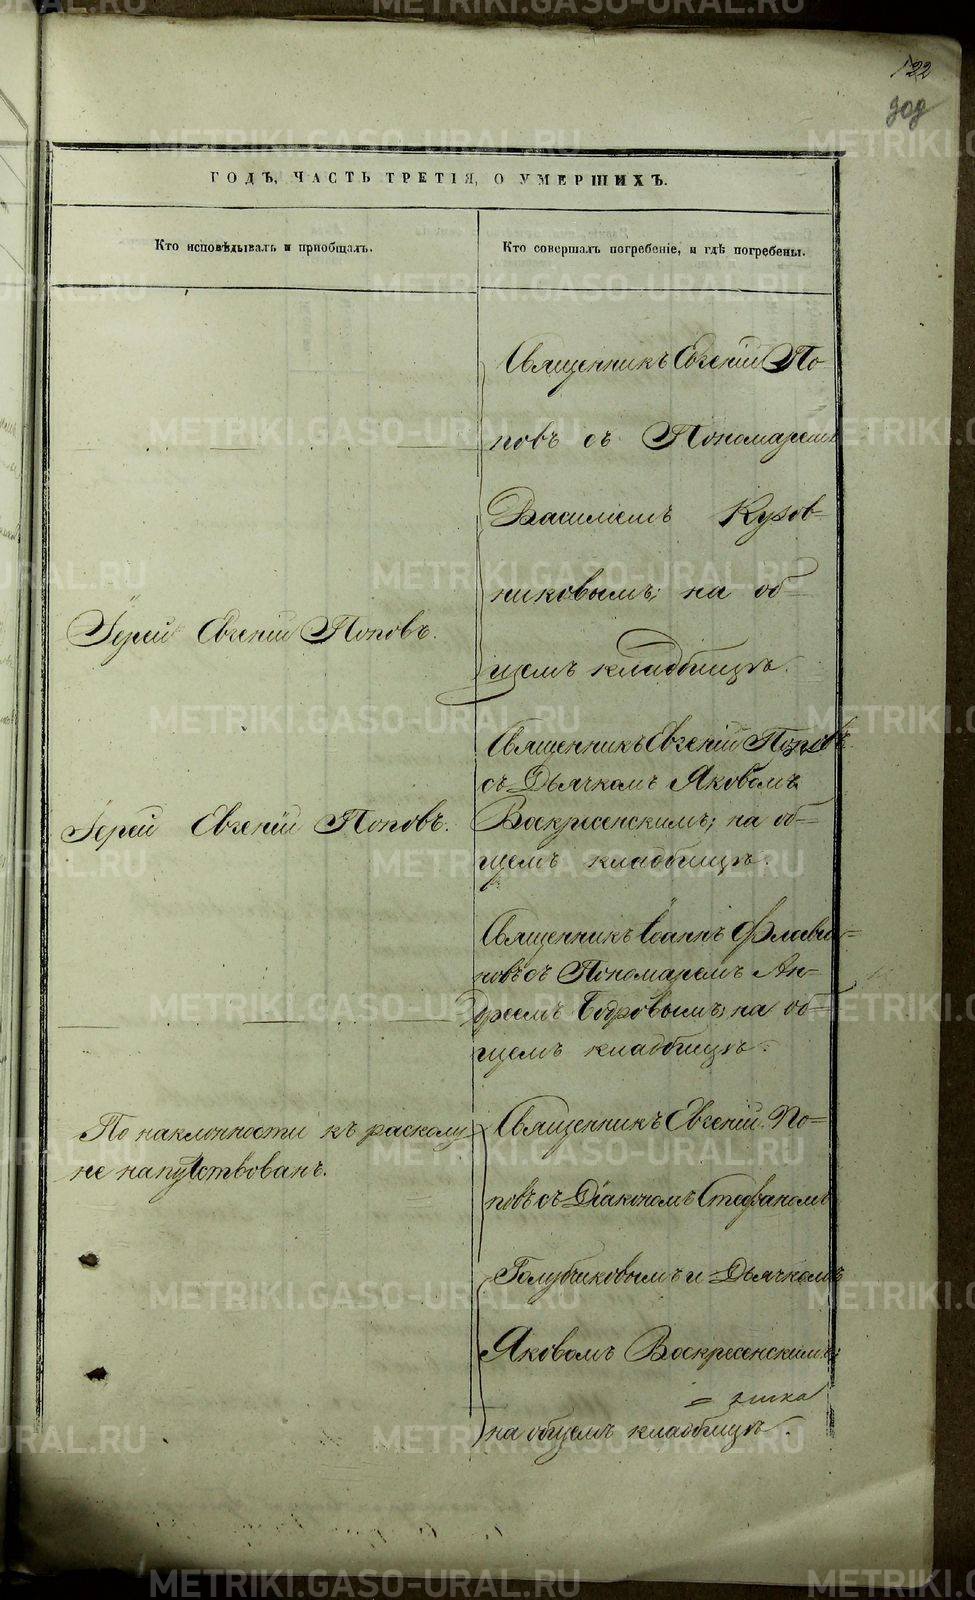 122
год
ГОДЪ, ЧАСТЬ ТРЕТІЯ, О УМЕРШИХЪ.
Кто исповѣдывалъ и пріобщалъ.
Кто совершалъ погребеніе, и гдѣ погребены.
Священникъ Евгеній По-
повъ съ Пономаремъ
Василіемъ Кузов-
никовымъ; на об-
щемъ кладбищѣ.
Іерей Евгеній Поповъ.
Священникъ Евгеній Поповъ
съ Дьячкомъ Яковомъ
Воскресенскимъ; на об-
щемъ кладбищѣ.
Іерей Евгеній Поповъ.
Священникъ Іоаннъ Флавіа-
новъ съ Пономаремъ Ан-
дреемъ Бодровымъ; на об-
щемъ кладбищѣ.
По наклонности къ расколу
не напутствованъ.
Священникъ Евгеній По-
повъ съ Діакономъ Стефаномъ
Голубчиковымъ и Дьячкомъ
Яковомъ Воскресенскимъ;
на общемъ кладбищѣ.
METRIKI.GASO-URAL.RU